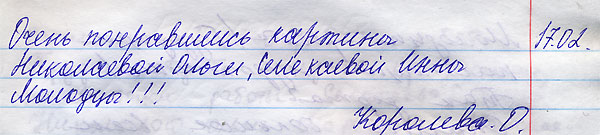 Очень понравились картины 17.02.
Николаевой Ольги, Селекаевой Инны
Молодцы!!!
Королева. О.